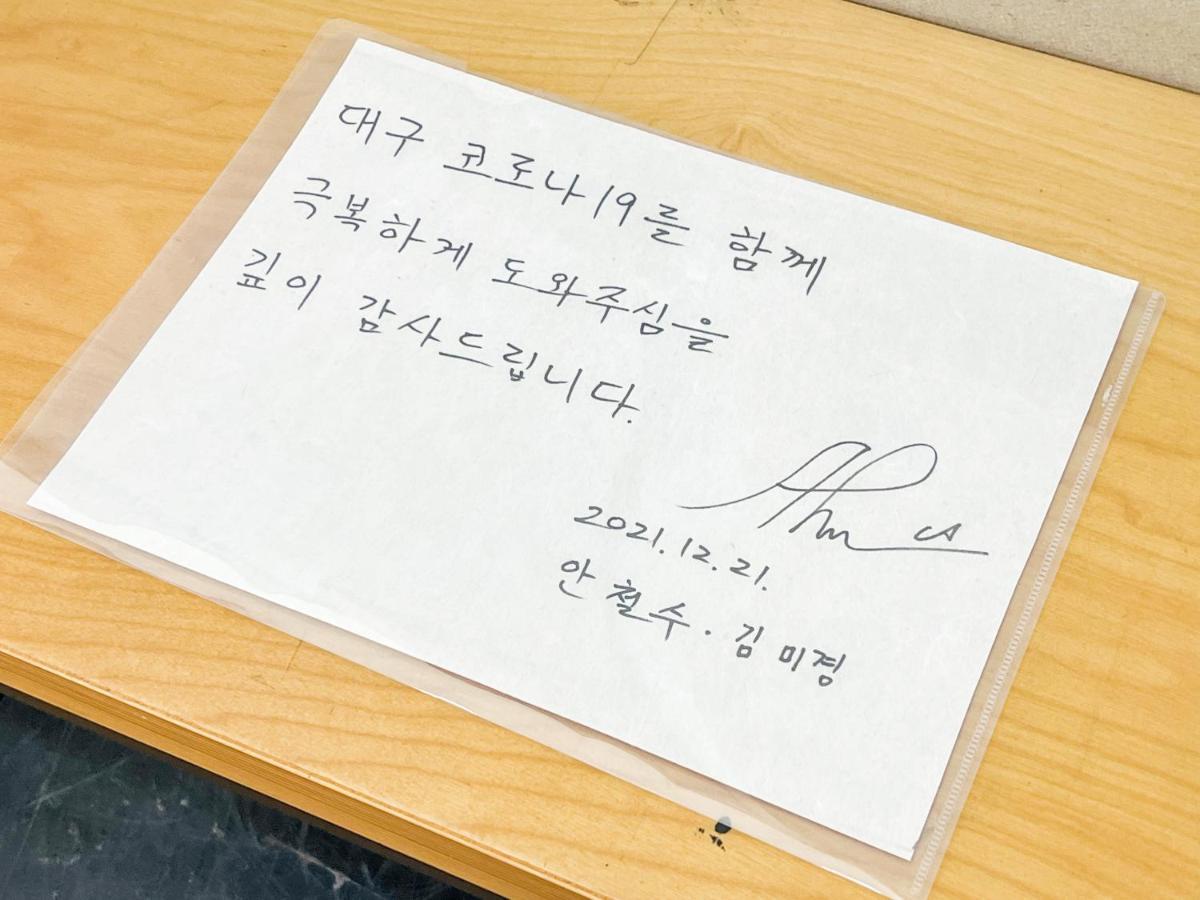 대구 코로나19를 함께
극복하게 도와주심을
깊이 감사드립니다.
Ahn
2021.12.21.
안철수·김미경